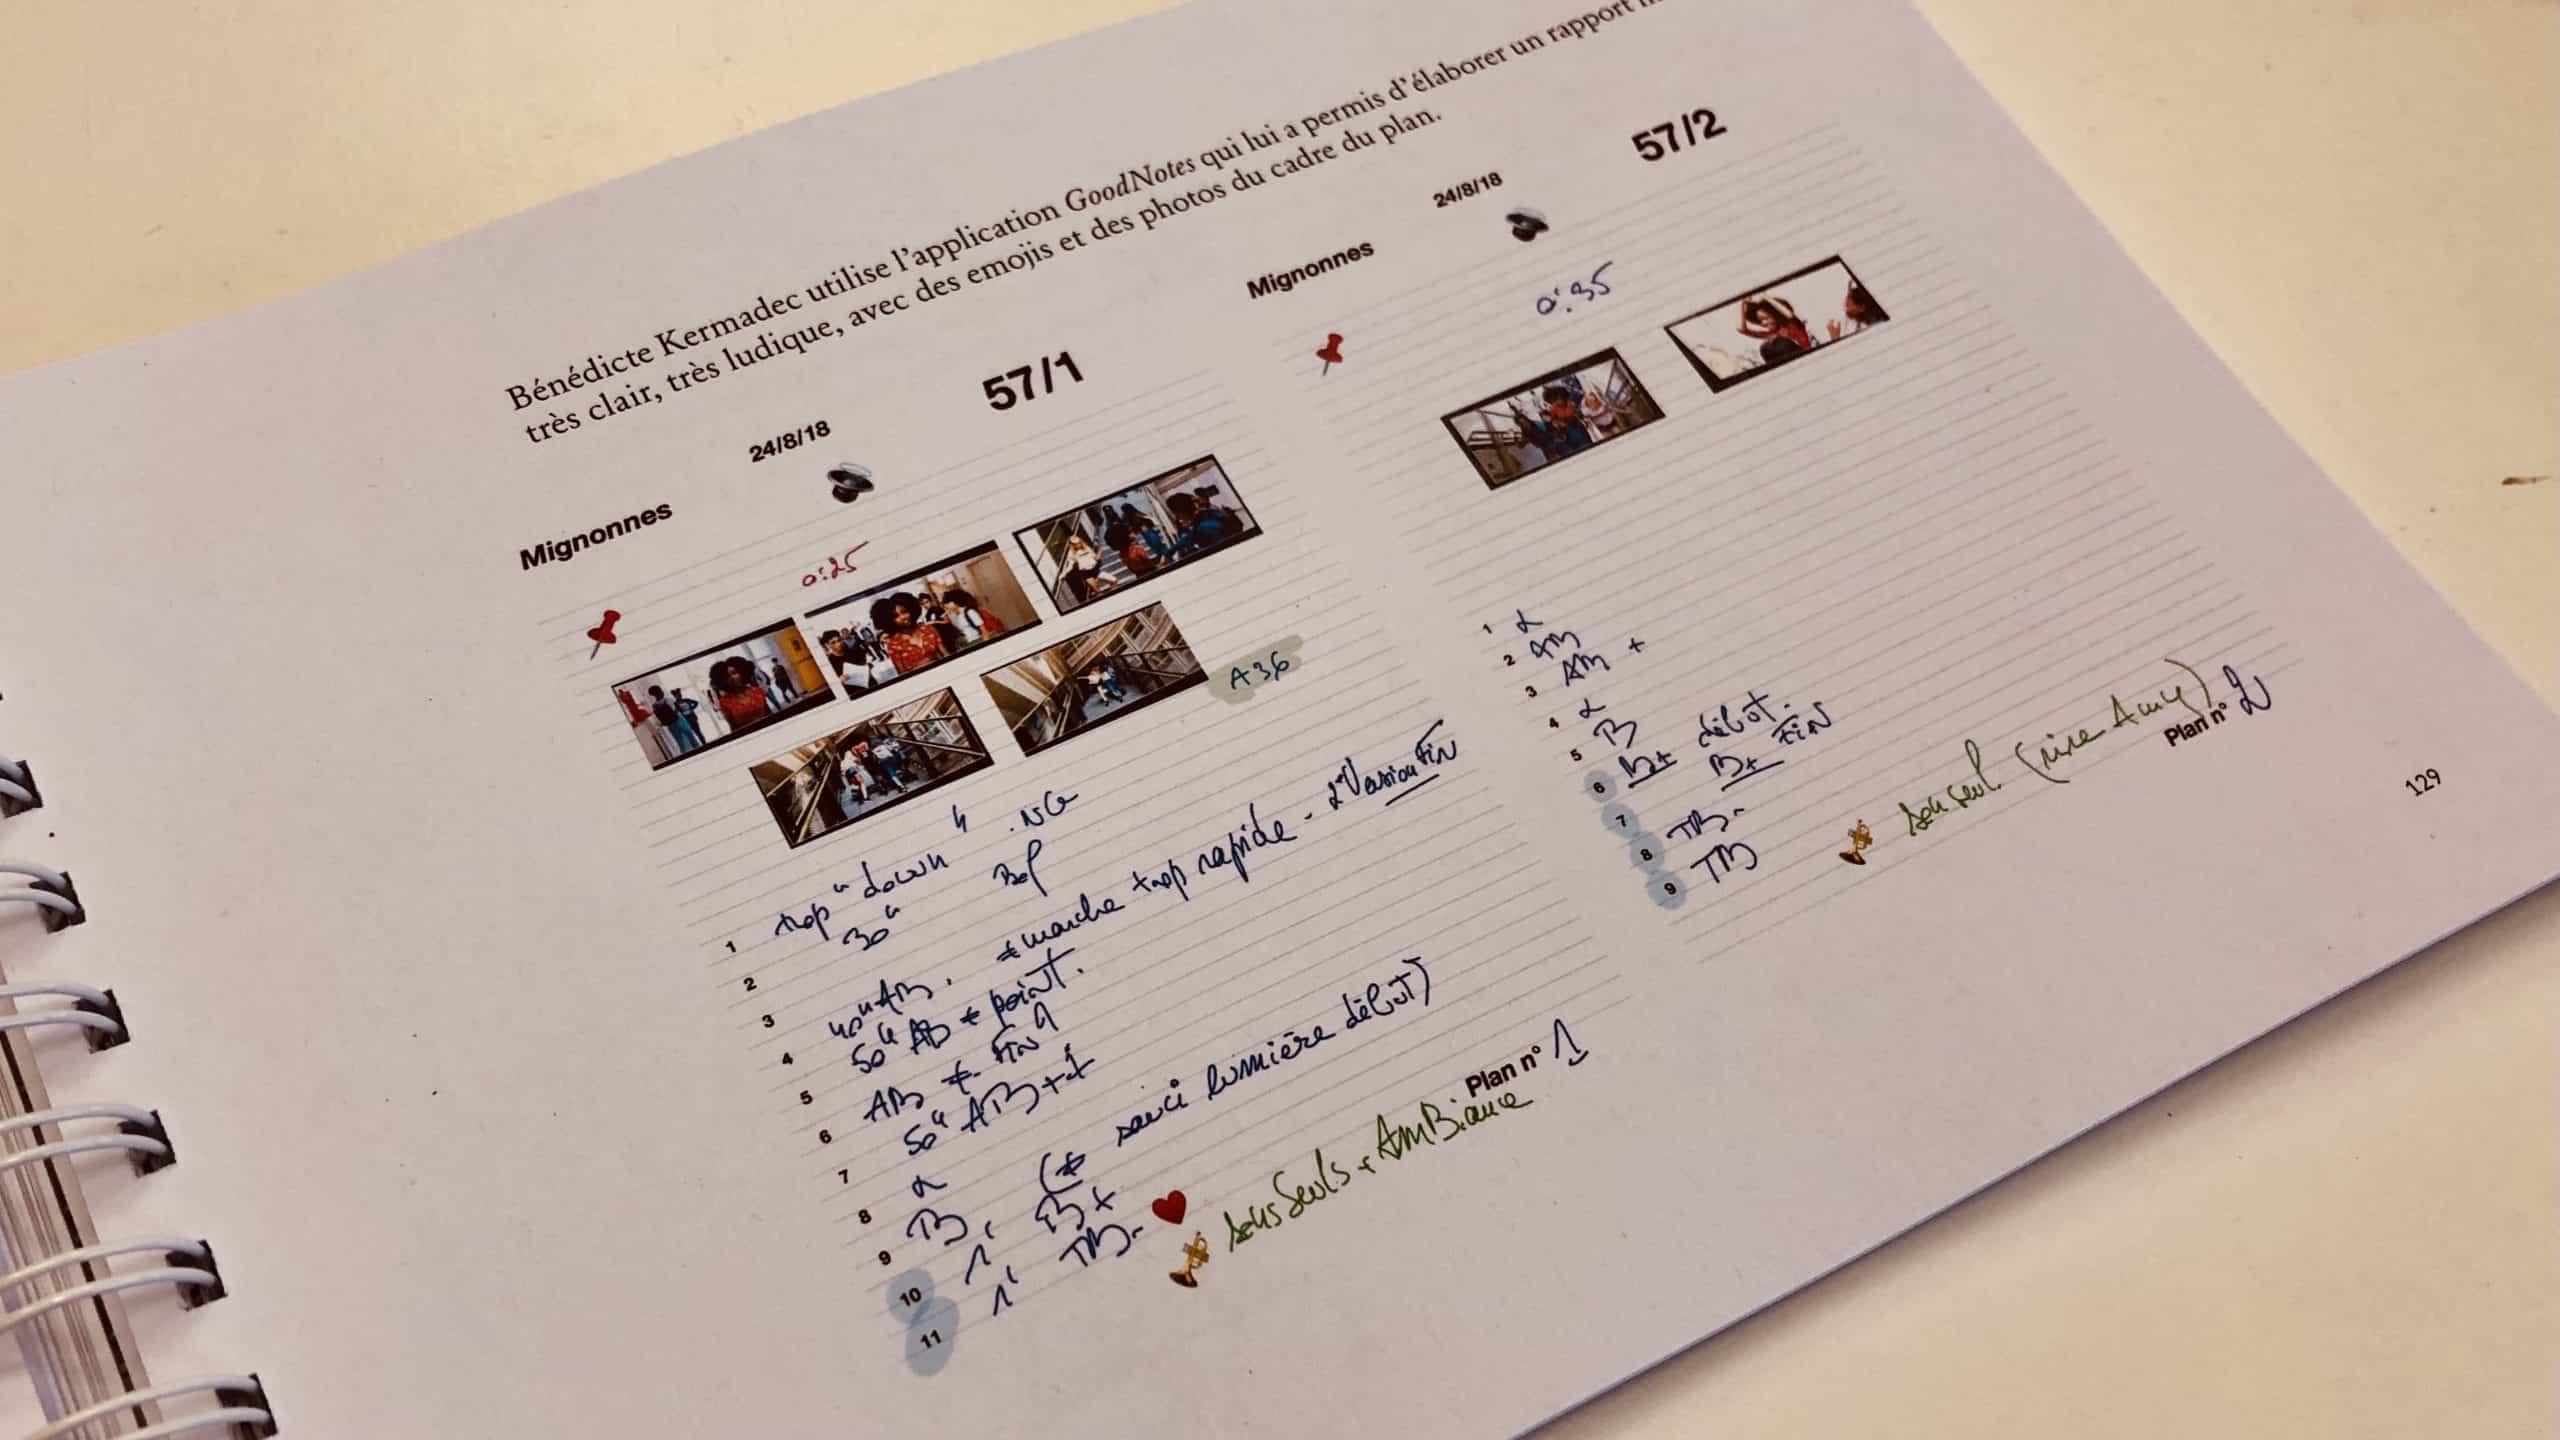 Bénédicte Kermadec utilise l'application GoodNotes qui lui a permis d'élaborer un rapport
très clair, très ludique, avec des emojis et des photos du cadre du plan.
Mignonnes
24/8/18
57/1
0:25
A36
1 trop "down" . NG
2 30" Bof
3 40" AB. marche trop rapide - 2e Version FIN
4 50" AB point.
5 AB FIN
6 50" AB++
7
8 B, ( souci lumière début)
9 1' B+
10 1' TB-
11
sons seuls + AmBiance
Plan n° 1
Mignonnes
24/8/18
57/2
0:35
1
2 AB
3 AB +
4
5 B
6 B+ début.
7 B+ FIN
8 TB-
9 TB
son seul (rire Amy)
Plan n° 2
129